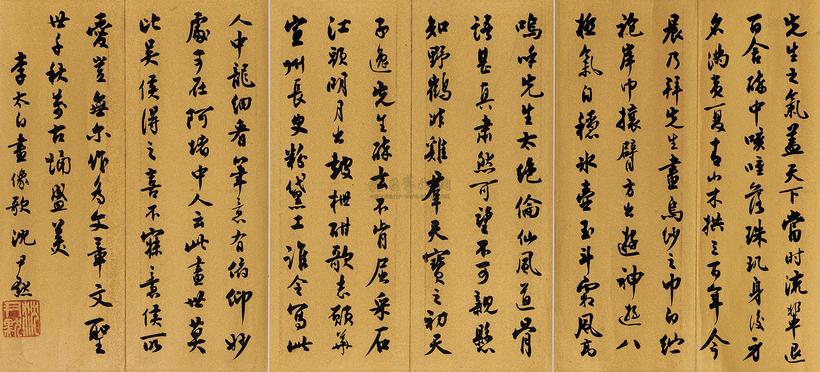 先生之氣蓋天下當时流輩退
百舍醉中咳唾落珠玑身後方
名滿夷夏青山木拱三百年今
晨乃拜先生畫烏紗之巾白紵
袍岸巾攘臂方出遊神遊八
極氣自穩冰壺玉斗霜風高
嗚呼先生太絕倫仙風道骨
語甚真肅然可望不可親懸
知野鶴非雞羣天寶之初天
子逸先生醉去不肯屈采石
江頭明月出鼓枻酣歌志願畢
宣州長史粉黛工誰令寫此
人中龍細看筆意有俯仰妙
處可在阿堵中人云此畫世莫
比吳侯得之喜不寐意侯所
愛豈無尔作为文章文聖
世千秋萬古誦盛美
李太白畫像歌 沈尹默